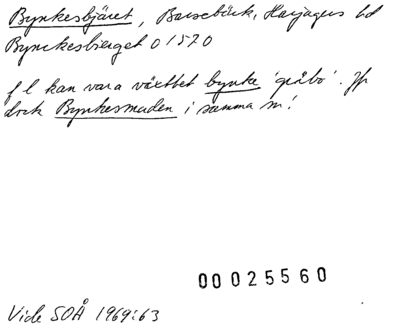 Bynkesbjäret, Barsebäck, Harjagers hd
Bynckesbierget 01570
f l kan vara växtbet bynke 'gråbo'. Jfr
dock Bynkesmaden i samma sn!
00 025560
Vide SOÅ 1969:63